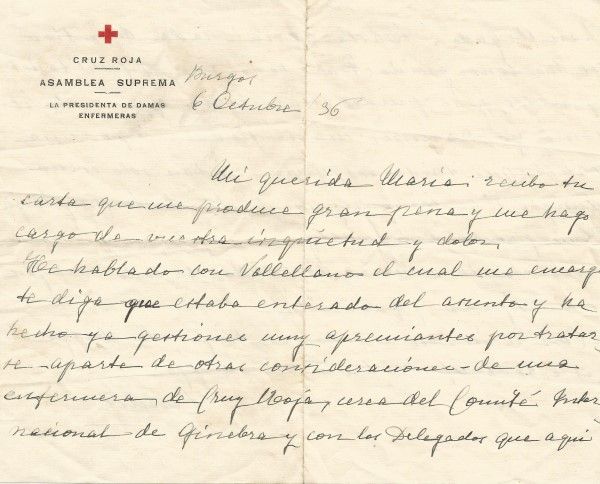 CRUZ ROJA
ASAMBLEA SUPREMA
LA PRESIDENTA DE DAMAS
ENFERMERAS
Burgos
6 Octubre /36
Mi querida María: recibo tu
carta que me produce gran pena y me hago
cargo de vuestra inquietud y dolor.
He hablado con Vallellano el cual me encarga
te diga que estaba enterado del asunto y ha
hecho ya gestiones muy apremiantes por tratar-
se -aparte de otras consideraciones- de una
enfermera de Cruz Roja, cerca del Comité Inter
nacional de Ginebra y con los Delegados que aqui